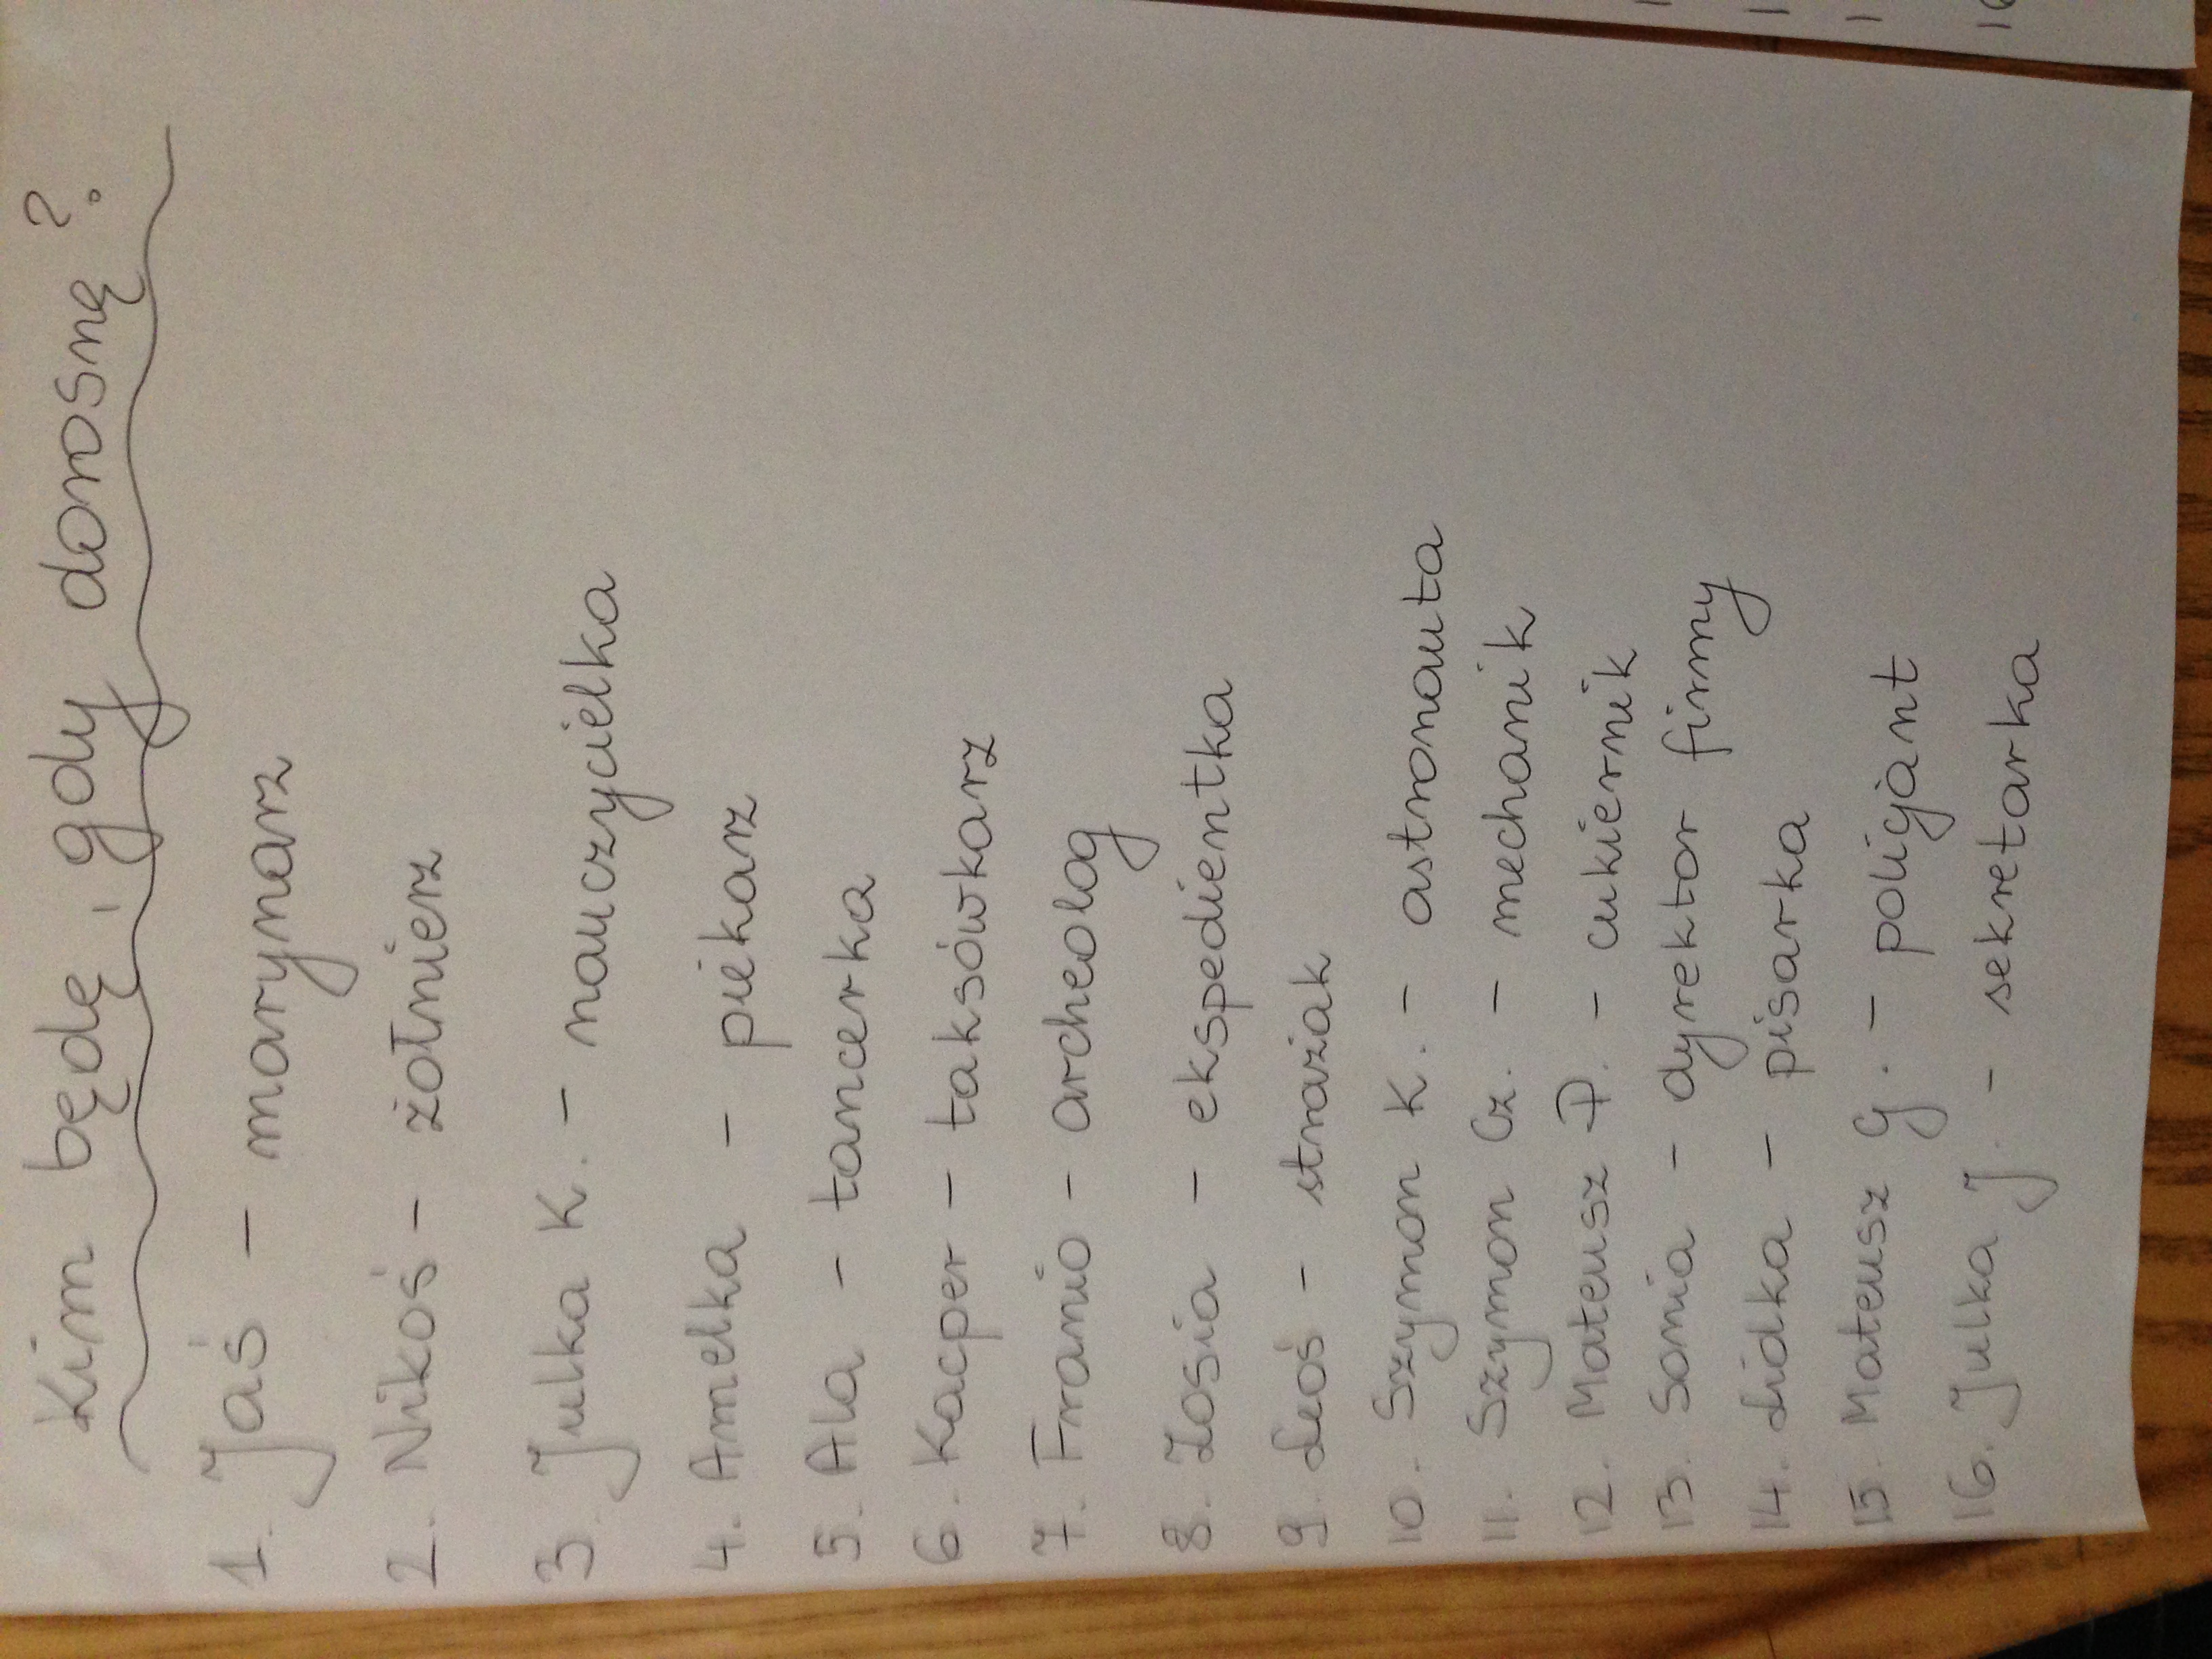 Kim będę, gdy dorosnę?
1. Jaś - marynarz
2. Nikoś - żołnierz
3. Julka K. - nauczycielka
4. Amelka - piekarz
5. Ala - tancerka
6. Kacper - taksówkarz
7. Franio - archeolog
8. Zosia - ekspedientka
9. Leoś - strażak
10. Szymon K. - astronauta
11. Szymon Cz. - mechanik
12. Mateusz P. - cukiernik
13. Sonia - dyrektor firmy
14. Lidka - pisarka
15. Mateusz G. - policjant
16. Julka J. - sekretarka